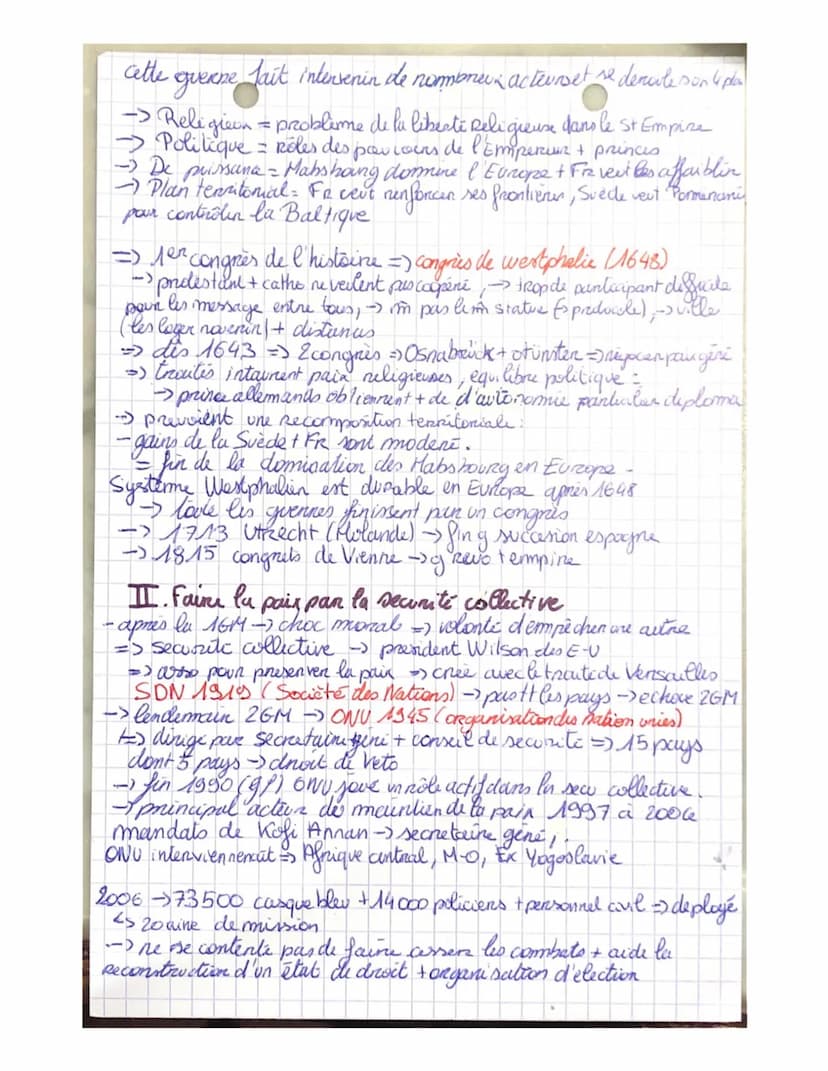 cette guerre fait intervenir de nombreux acteurs et se deroule sur 4 plan
-> Religieux = problème de la liberté Religieuse dans le St Empire
-> Politique = rôles des pouvoirs de l'Empereur + princes
-> De puissance = Habsbourg domine l'Europe + Fr veut les affaiblir
-> Plan territorial = FR veut renforcer ses frontières, Suède veut Pomeranie
pour contrôler la Baltique
=> 1er congrès de l'histoire => congrès de westphalie (1648)
-> protestant + catho ne veulent pas coopéré, -> trop de participant difficile
pour les message entre tous, -> m̄ pas le m̄ statue (-> protocole), -> ville
(les loger + distances
=> dès 1643 => 2 congrès => Osnabrück + Münster => négocier paix géné
=> traités paix religieuses, équilibre politique =
-> prince allemands obtiennent + de d'autonomie particulier diploma
-> prevoient une recomposition territoriale :
- gains de la Suède + FR sont modéré.
= fin de la domination des Habsbourg en Europe -
Système Westphalien est durable en Europe après 1648
-> toute les guerres finissent par un congrès
-> 1713 Utrecht (Holande) -> fin g succesion espagne
-> 1815 congrets de Vienne -> g Revo + empire
II. Faire la paix par la securité collective
- après la 1GM -> choc moral => volonté d'empêcher une autre
=> securite collective -> president Wilson des E-U
=> asso pour preserver la paix => creé avec le traité de Versailles
SDN 1919 (Société des Nations) -> pas tt les pays -> echoue 2GM
-> lendemain 2GM -> ONU 1945 (organisation des Nation unies)
=> dirigé par secretaire géné + conseil de securité => 15 pays
dont 5 pays -> droit de veto
-> fin 1990 (gf) ONU joue un rôle actif dans la secu collective.
-> principal acteur de maintien de la paix 1997 à 2006
mandats de Kofi Annan -> secretaire géné,.
ONU => Afrique central, M-O, Ex Yogoslavie
2006 -> 73500 casque bleu + 14000 policiers + personnel civil => deployé
↳ 20aine de mission
-> ne se contente pas de faire cesser les combats + aide la
reconstruction d'un état de droit + organisation d'élection